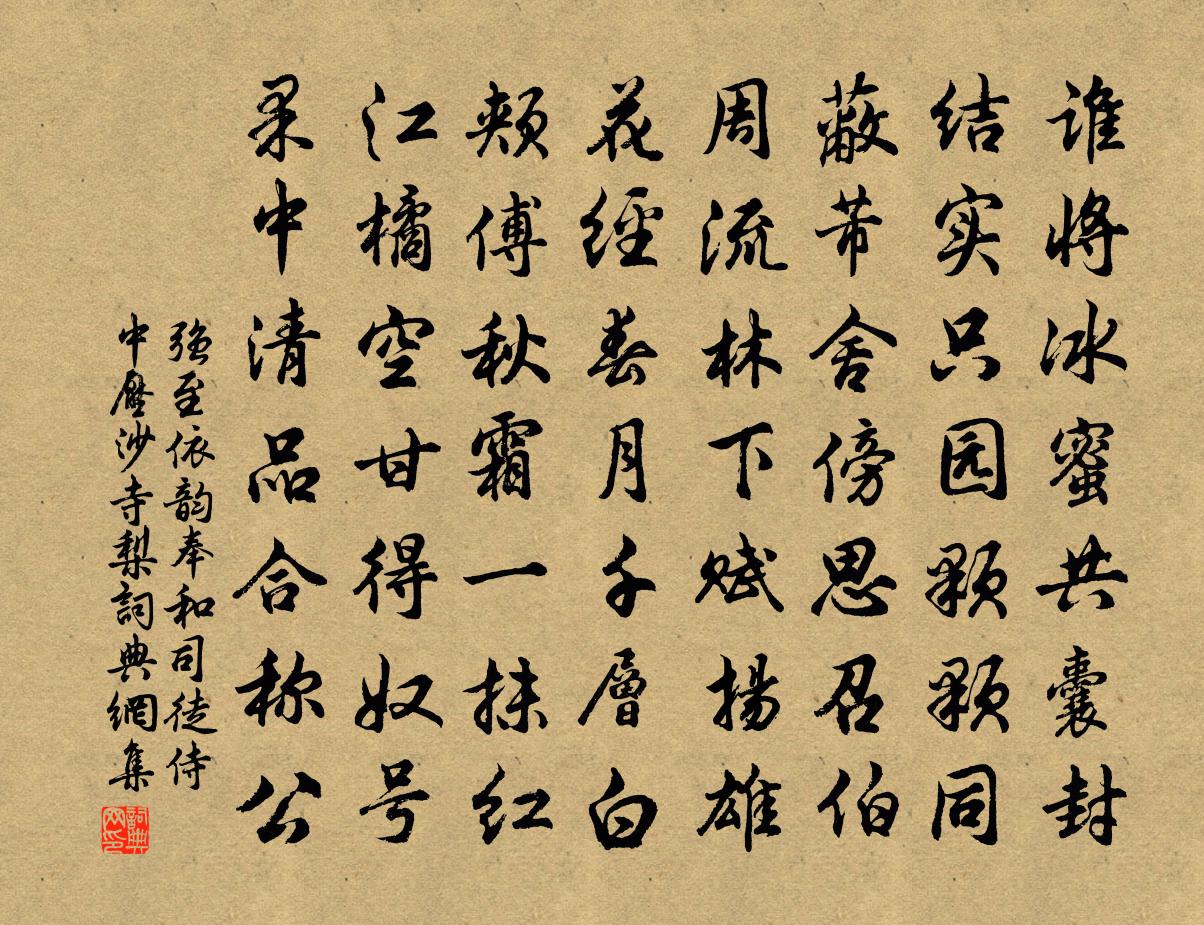 谁将冰蜜共囊封
结实只园颗颗同
蔽芾舍傍思召伯
周流林下赋揚雄
花經春月千層白
颊傅秋霜一抹红
江橘空甘得奴号
果中清品合称公
强至依韵奉和司徒侍
中壓沙寺梨詞典網集
詞典
网印